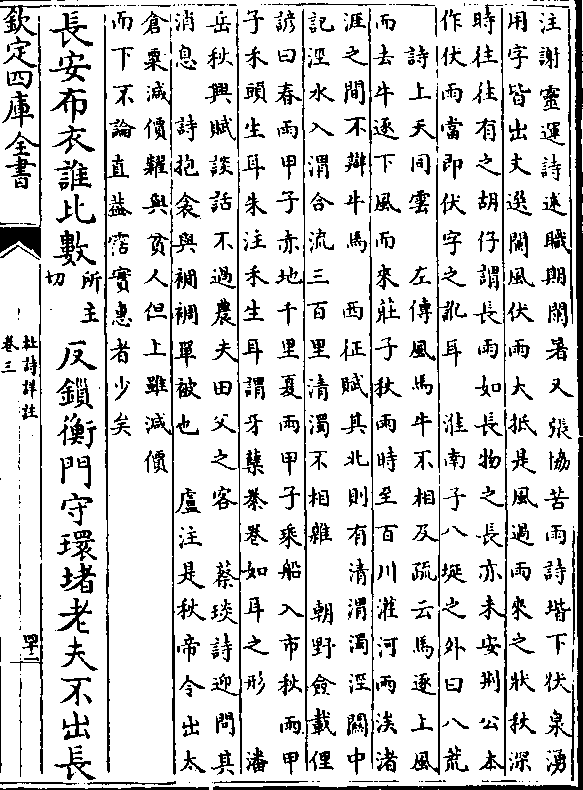 注謝靈運詩述職期闌暑又張協苦雨詩堦下伏泉湧
用字皆出文選闌風伏雨大抵是風過雨來之狀秋深
時往往有之胡仔謂長雨如長物之長亦未安荆公本
作伏雨當即伏字之訛耳　淮南子八埏之外曰八荒
詩上天同雲　左傳風馬牛不相及疏云馬逐上風
而去牛逐下風而來莊子秋雨時至百川灌河兩涘渚
涯之間不辯牛馬　西征賦其北則有清渭濁涇關中
記涇水入渭合流三百里清濁不相雜　朝野僉載俚
諺曰春雨甲子赤地千里夏雨甲子乘船入市秋雨甲
子禾頭生耳朱注禾生耳謂牙蘖拳卷如耳之形　潘
岳秋興賦談話不過農夫田父之客　蔡琰詩迎問其
消息　詩抱衾與裯裯單被也　盧注是秋帝令出太
倉粟減價糶與貧人但上雖減價
而下不論直益霑實惠者少矣
長安布衣誰比數所主切　反鎖衡門守環堵老夫不出長
欽定四庫全書
杜詩詳註
卷三
四十二